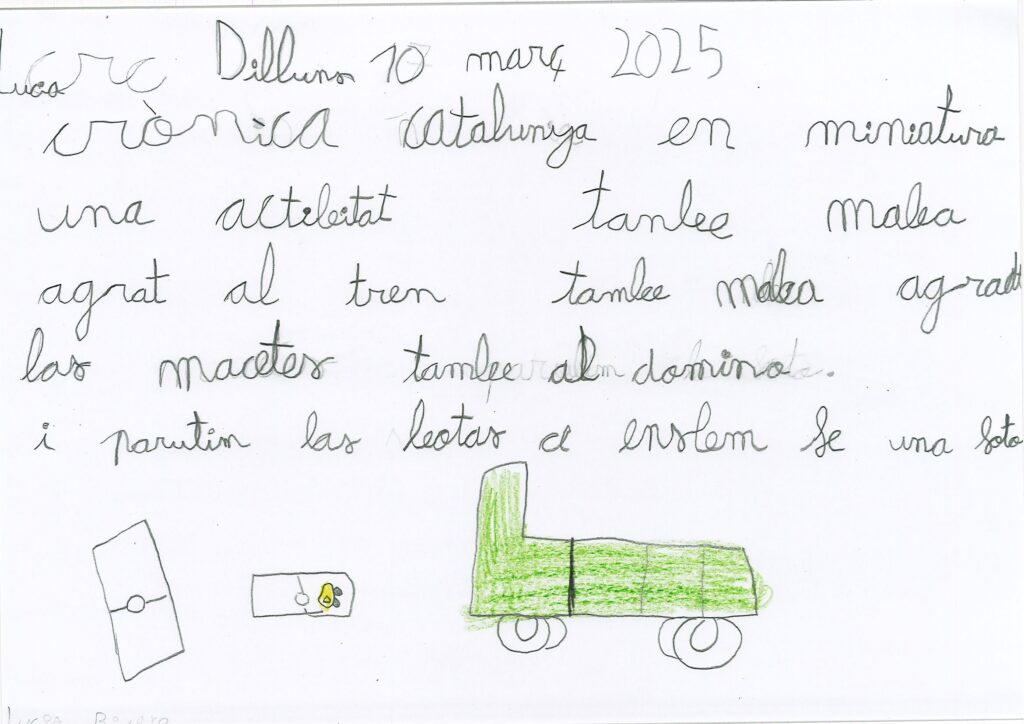 Lucas Dilluns 10 març 2025
crònica catalunya en miniatura
una actibitat tanbe maba
agrat al tren tambe maba agradat
las macetes tambe al domino.
i parutim las botas de enslem se una foto